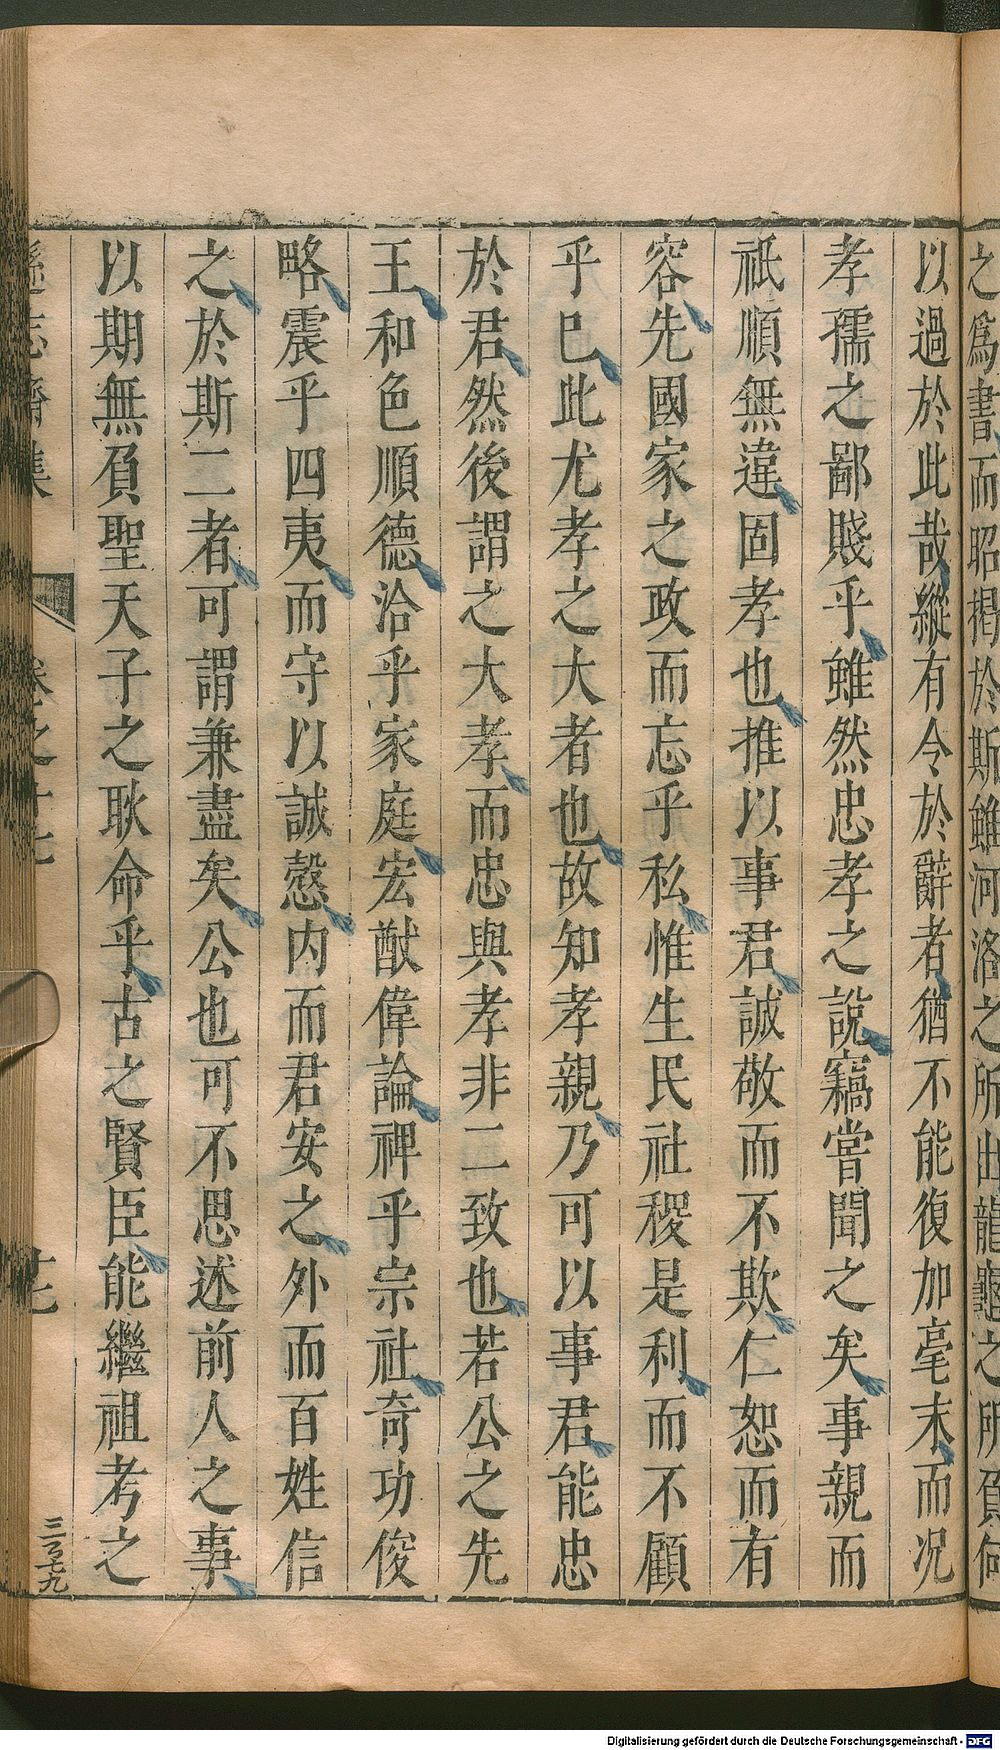 之爲書而昭揭於斯雖河洛之所出龍龜之所負何
以過於此哉縱有令於辭者猶不能復加毫末而况
孝孺之鄙賤乎雖然忠孝之說竊嘗聞之矣事親而
祇順無違固孝也推以事君誠敬而不欺仁恕而有
容先國家之政而忘乎私惟生民社稷是利而不顧
乎已此尤孝之大者也故知孝親乃可以事君能忠
於君然後謂之大孝而忠與孝非二致也若公之先
王和色順德洽乎家庭宏猷偉論裨乎宗社奇功俊
略震乎四夷而守以誠慤内而君安之外而百姓信
之於斯二者可謂兼盡矣公也可不思述前人之事
以期無負聖天子之耿命乎古之賢臣能繼祖考之
遜志齋集
卷之十七
三百七九
Digitalisierung gefördert durch die Deutsche Forschungsgemeinschaft - DFG